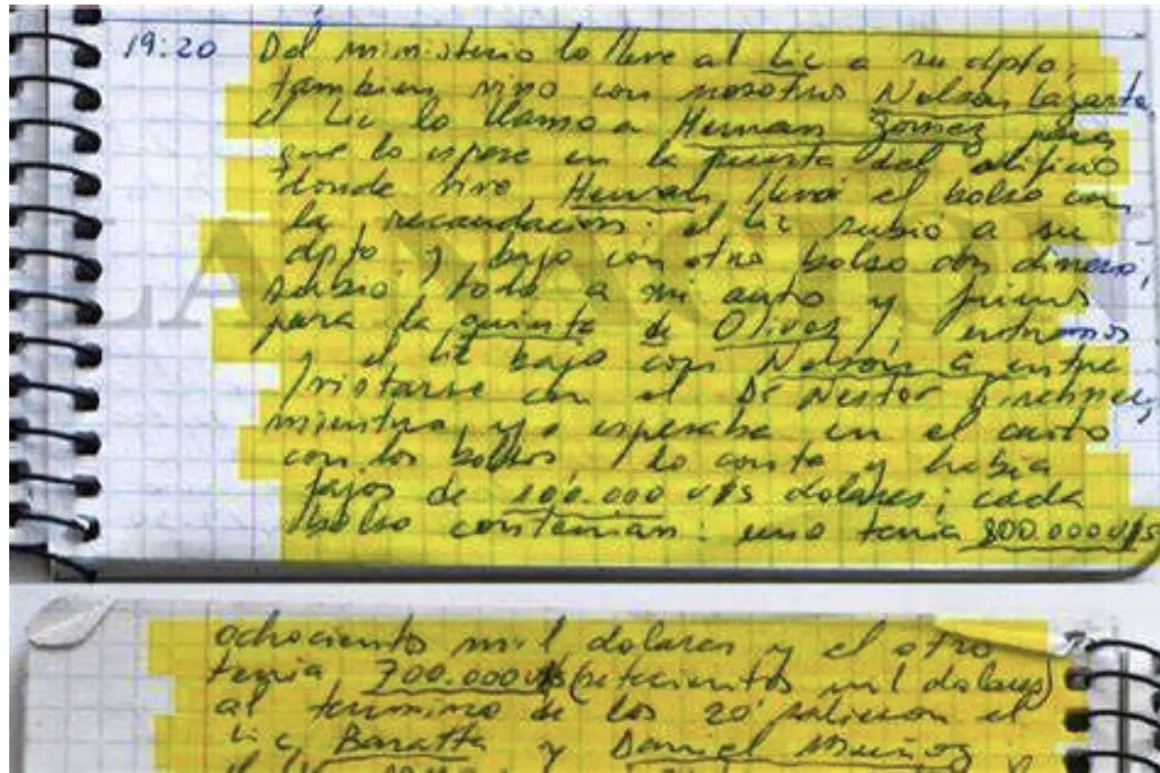 19:20 Del ministerio lo lleve al Lic a su dpto,
tambien vino con nosotros Nelson Lazarte
el Lic lo llamo a Hernan Gomez para
que lo espere en la puerta del edificio
donde vive Hernan, llevó el bolso con
la recaudacion. el Lic subió a su
dpto, y bajo con otro bolso con dinero,
subio todo a mi auto y fuimos
para la quinta de Olivos, entramos
y el Lic bajo con Nelson a entre
vistarse con el Dr Nestor Kirchner,
mientra yo esperaba en el auto
con los bolsos, lo conte y habia
fajos de 100.000 U$S dolares; cada
bolso contenian: uno tenia 800.000 U$S
LA NACION
ochociento mil dolares y el otro
tenia 700.000 U$S (setecientos mil dolares)
al termino de los 20' salieron el
Lic, Baratta y Daniel Muñoz